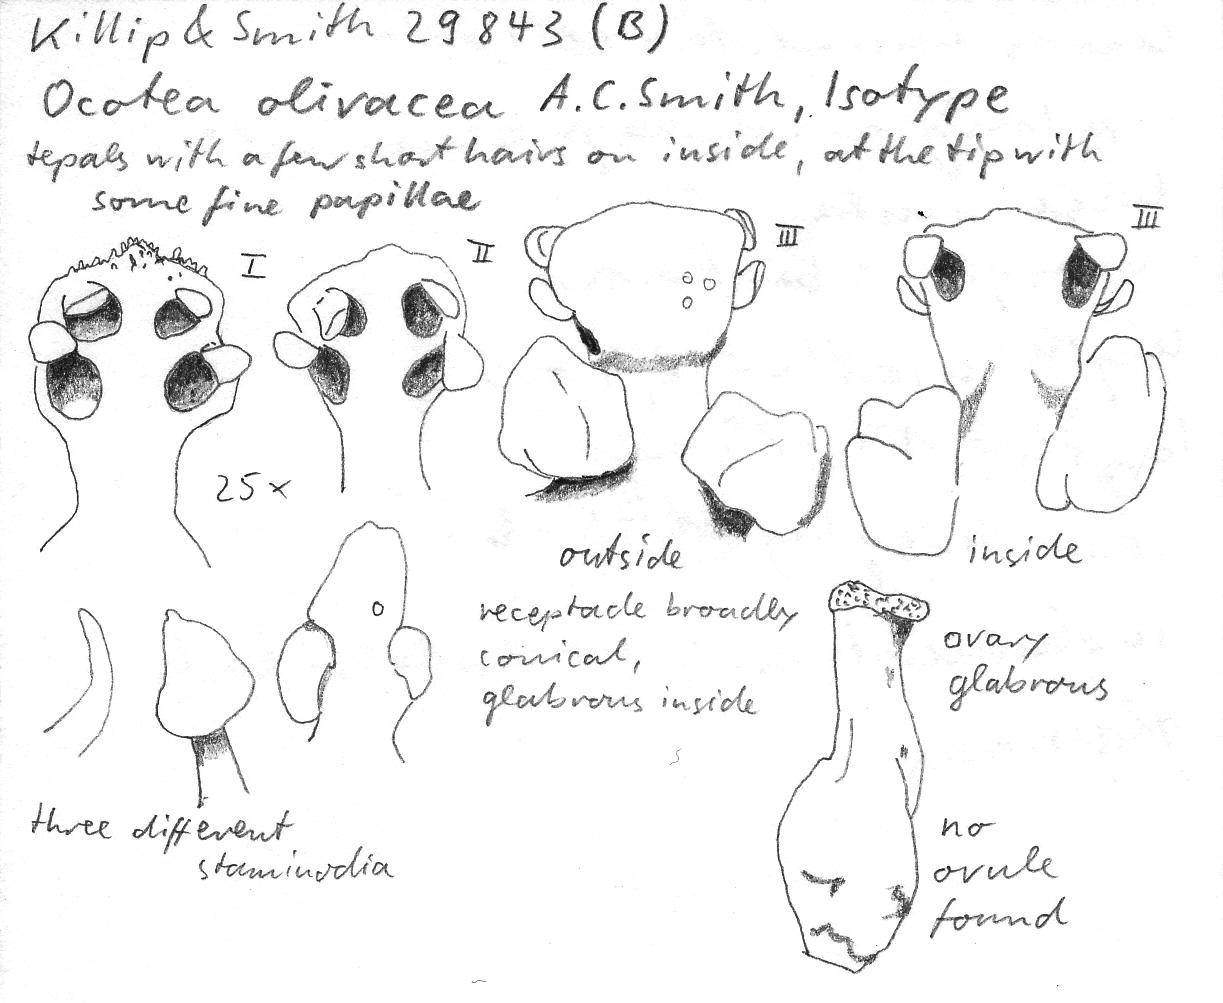 Killip & Smith 29843 (B)
Ocotea olivacea A.C.Smith, Isotype
tepals with a few short hairs on inside, at the tip with
some fine papillae
I
II
III
III
25x
outside
inside
receptacle broadly
conical,
glabrous inside
ovary
glabrous
three different
staminodia
no
ovule
found